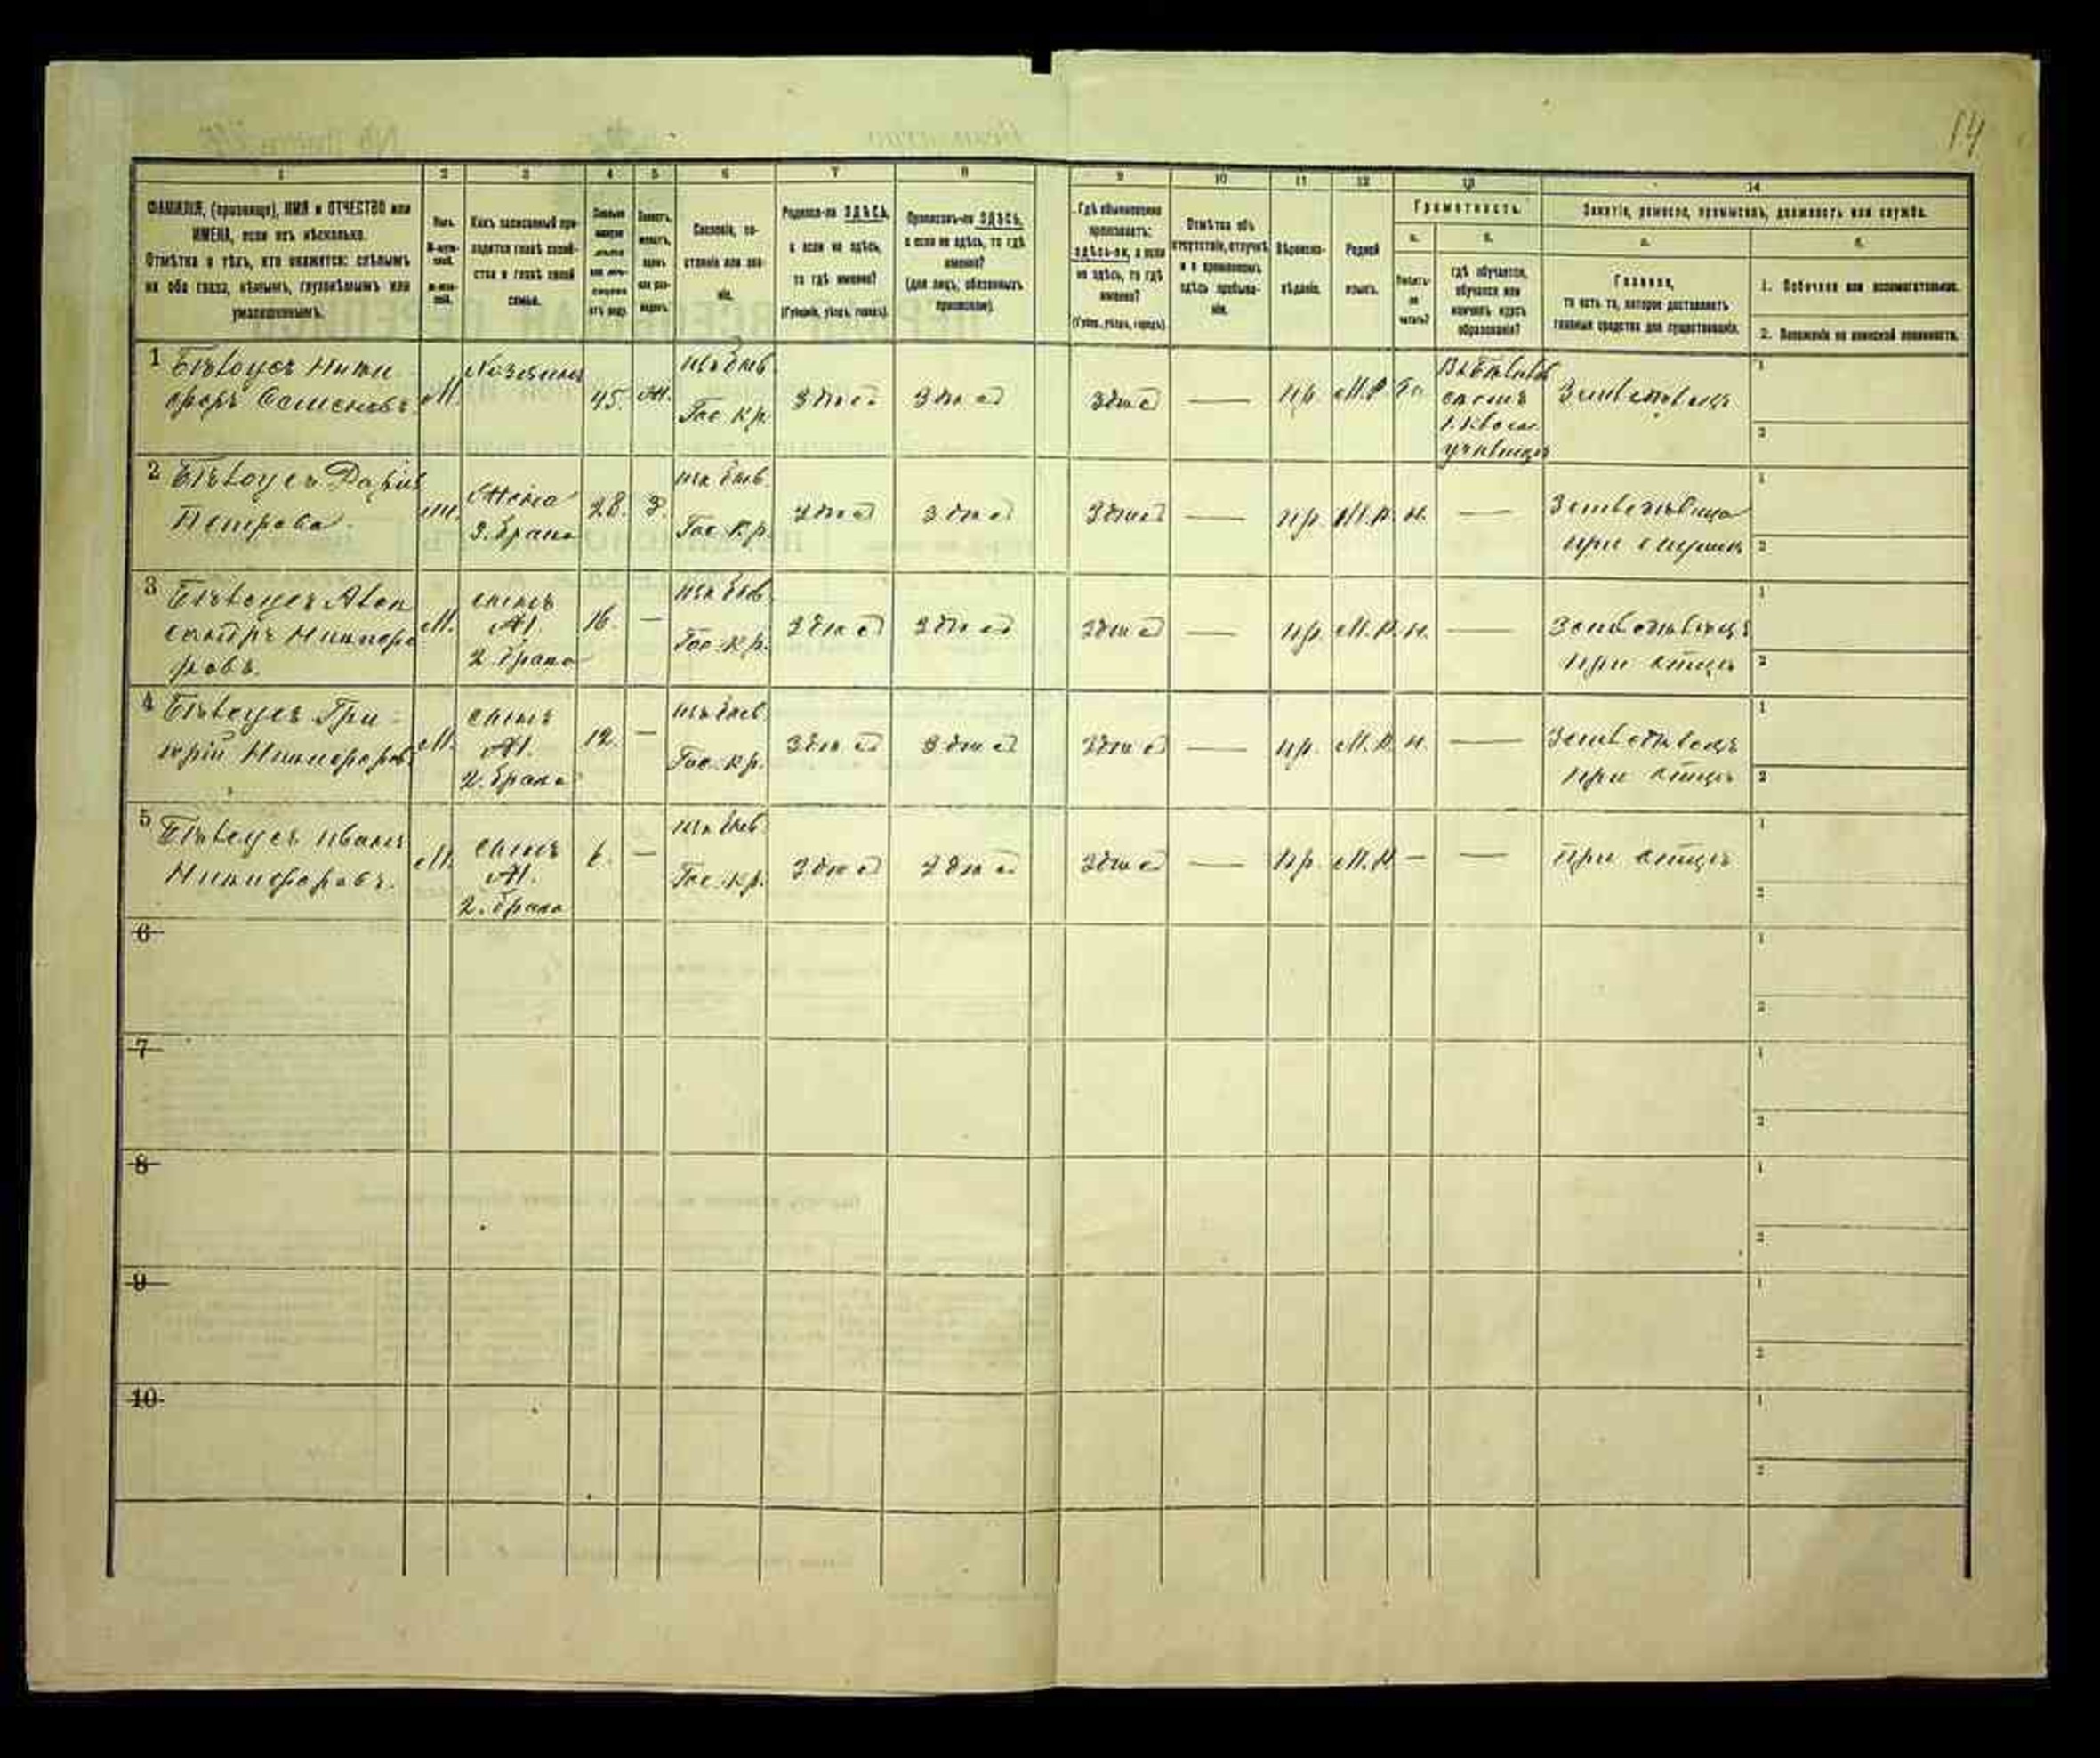 14
1 2 3 4 5 6 7 8 9 10 11 12 13 14
ФАМИЛІЯ, (прозвище), ИМЯ и ОТЧЕСТВО или
ИМЕНА, если ихъ нѣсколько.
Отмѣтка о тѣхъ, кто окажется: слѣпымъ
на оба глаза, нѣмымъ, глухонѣмымъ или
умалишеннымъ.
Какъ записанный при-
ходится главѣ хозяй-
ства и главѣ своей
семьи.
Сословіе, со-
стояніе или зва-
ніе.
Родился-ли ЗДѢСЬ,
а если не здѣсь,
то гдѣ именно?
(Губернія, уѣздъ, городъ).
Приписанъ-ли ЗДѢСЬ,
а если не здѣсь, то гдѣ
именно?
(для лицъ, обязанныхъ
припискою).
Гдѣ обыкновенно
проживаетъ:
здѣсь-ли, а если
не здѣсь, то гдѣ
именно?
(Губер., уѣздъ, городъ)
Отмѣтка объ
отсутствіи, отлучкѣ
и о временномъ
здѣсь пребыва-
ніи.
Вѣроиспо-
вѣданіе.
Родной
языкъ.
Грамотность.
а. б.
Умѣетъ-
ли
читать?
гдѣ обучается,
обучался или
кончилъ курсъ
образованія?
Занятіе, ремесло, промыселъ, должность или служба.
а. б.
Главное,
то есть то, которое доставляетъ
главныя средства для существованія.
1. Побочное или вспомогательное.
2. Положеніе по воинской повинности.
1 Бѣлоусъ Ники
форъ Семеновъ М. Хозяинъ 45. Ж. Гос. кр. Здѣсь Здѣсь Здѣсь — пр. М.Р. Да
училищѣ Земледѣлецъ
2 Бѣлоусъ Дарія
Петрова Жена
2. брака 28. З. Гос. кр. Здѣсь Здѣсь Здѣсь — пр. М.Р. н. — Земледѣлица
при
3 Бѣлоусъ Алек
сандръ Никифо
ровъ. М. сынъ
М.
2. брака 16. — Гос. кр. Здѣсь Здѣсь Здѣсь — пр. М.Р. н. — Земледѣлецъ
при отцѣ
4 Бѣлоусъ Гри-
горій Никифоровъ М. сынъ
М.
2. брака 12. — Гос. кр. Здѣсь Здѣсь Здѣсь — пр. М.Р. н. — Земледѣлецъ
при отцѣ
5 Бѣлоусъ Иванъ
Никифоровъ. М. сынъ
М.
2. брака 6. — Гос. кр. Здѣсь Здѣсь Здѣсь — пр. М.Р. — — при отцѣ
6
7
8
9
10